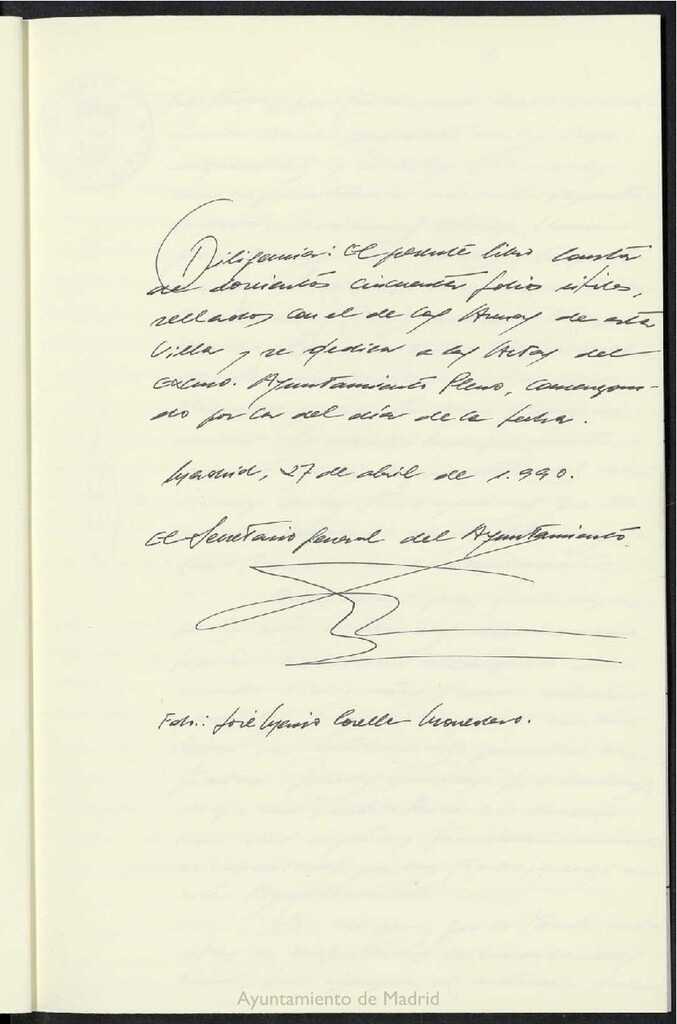 Diligencia: El presente libro consta
de doscientos cincuenta folios útiles,
sellados con el de las Armas de esta
Villa y se dedica a las Actas del
Excmo. Ayuntamiento Pleno, comenzan-
do por la del día de la fecha.
Madrid, 27 de abril de 1.990.
El Secretario General del Ayuntamiento
Fdo.: José Mario Corella Monedero.
Ayuntamiento de Madrid